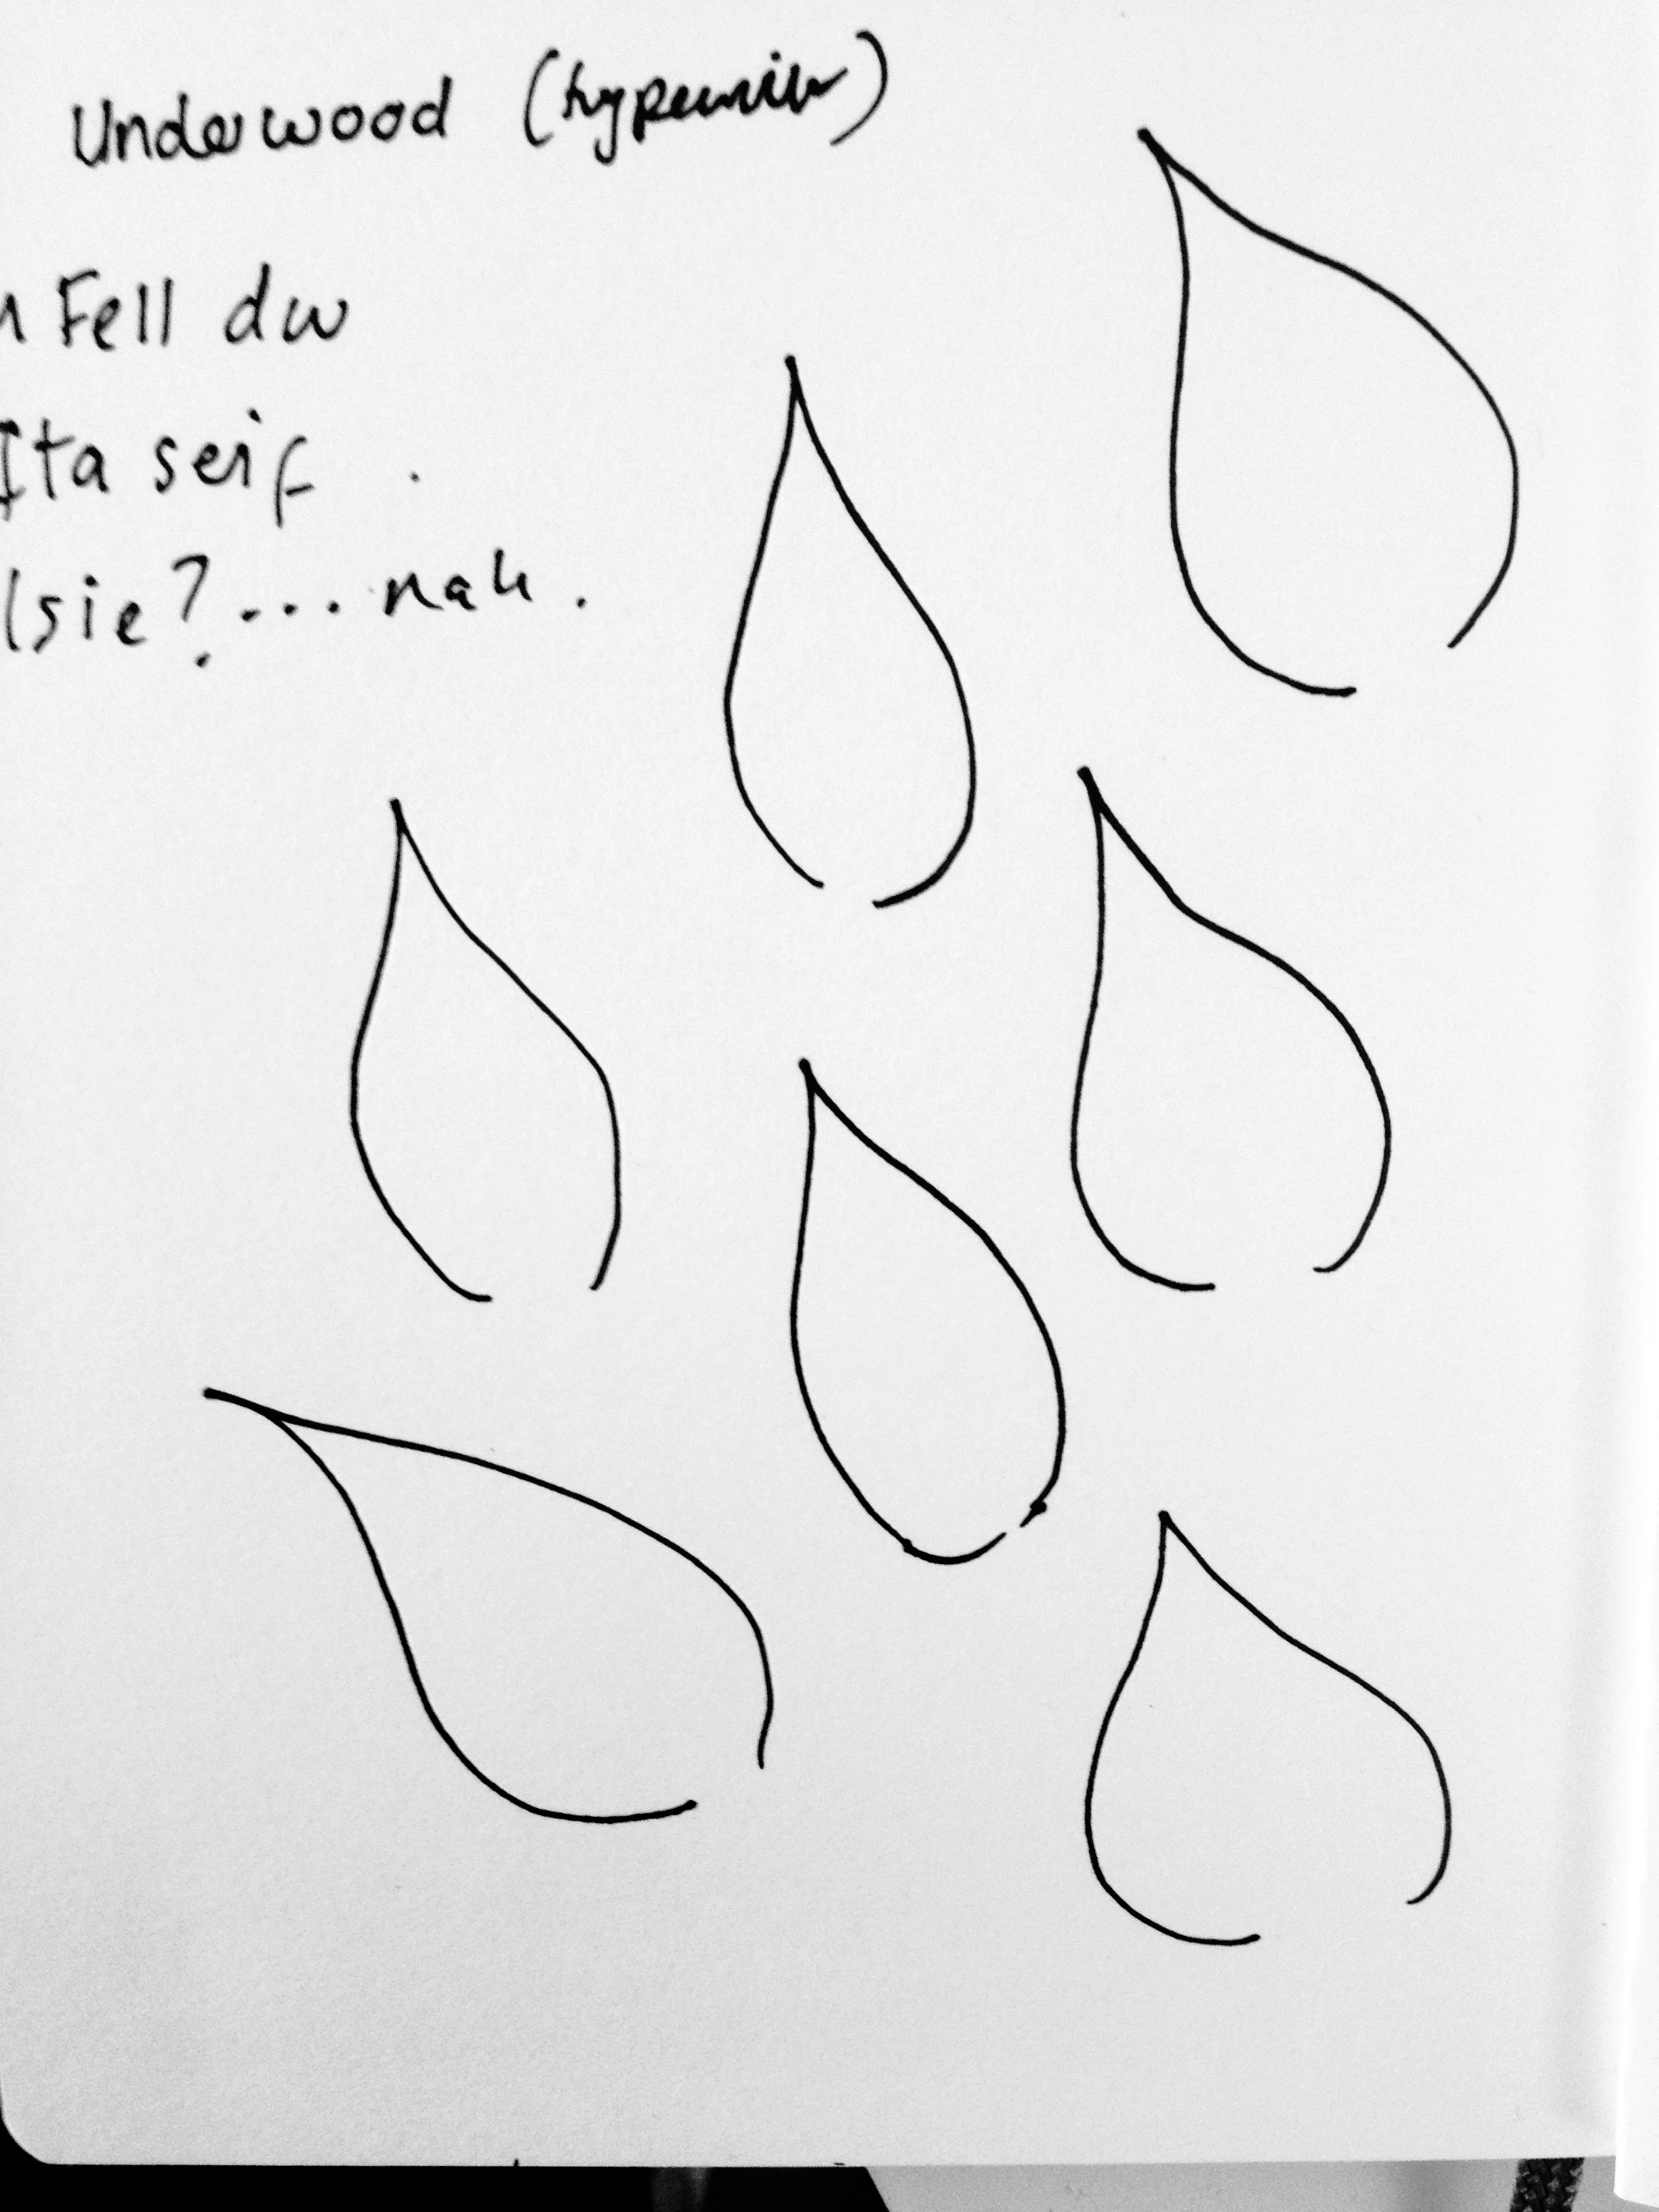 Underwood (typewriter)
Fell dw
Ita serif
lsie?... nah.